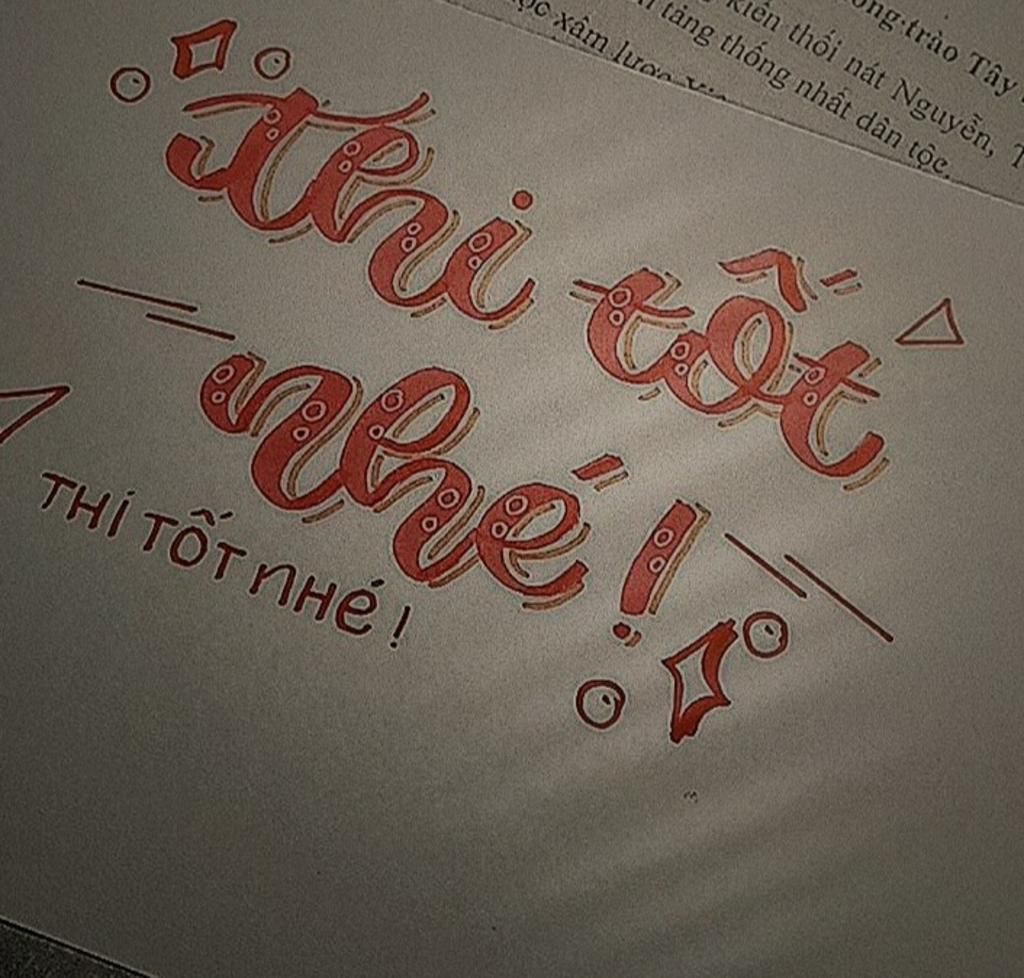 ong trào Tây
kiến thối nát Nguyễn,
tảng thống nhất dân tộc.
xâm lược
Thi tốt
nhé!
THI TỐT nHé!